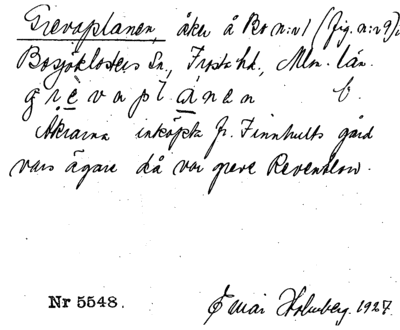 Grevaplanen, åker å Bo n:r 1 (fig. n:r 9) i
Bosjöklosters Sn, Frosta hd., Mlm. län.
grèvaplánen b.
Åkrarna inköpta fr. Finnhults gård
vars ägare då var greve Reventlow.
Nr 5548. Einar Holmberg. 1927.